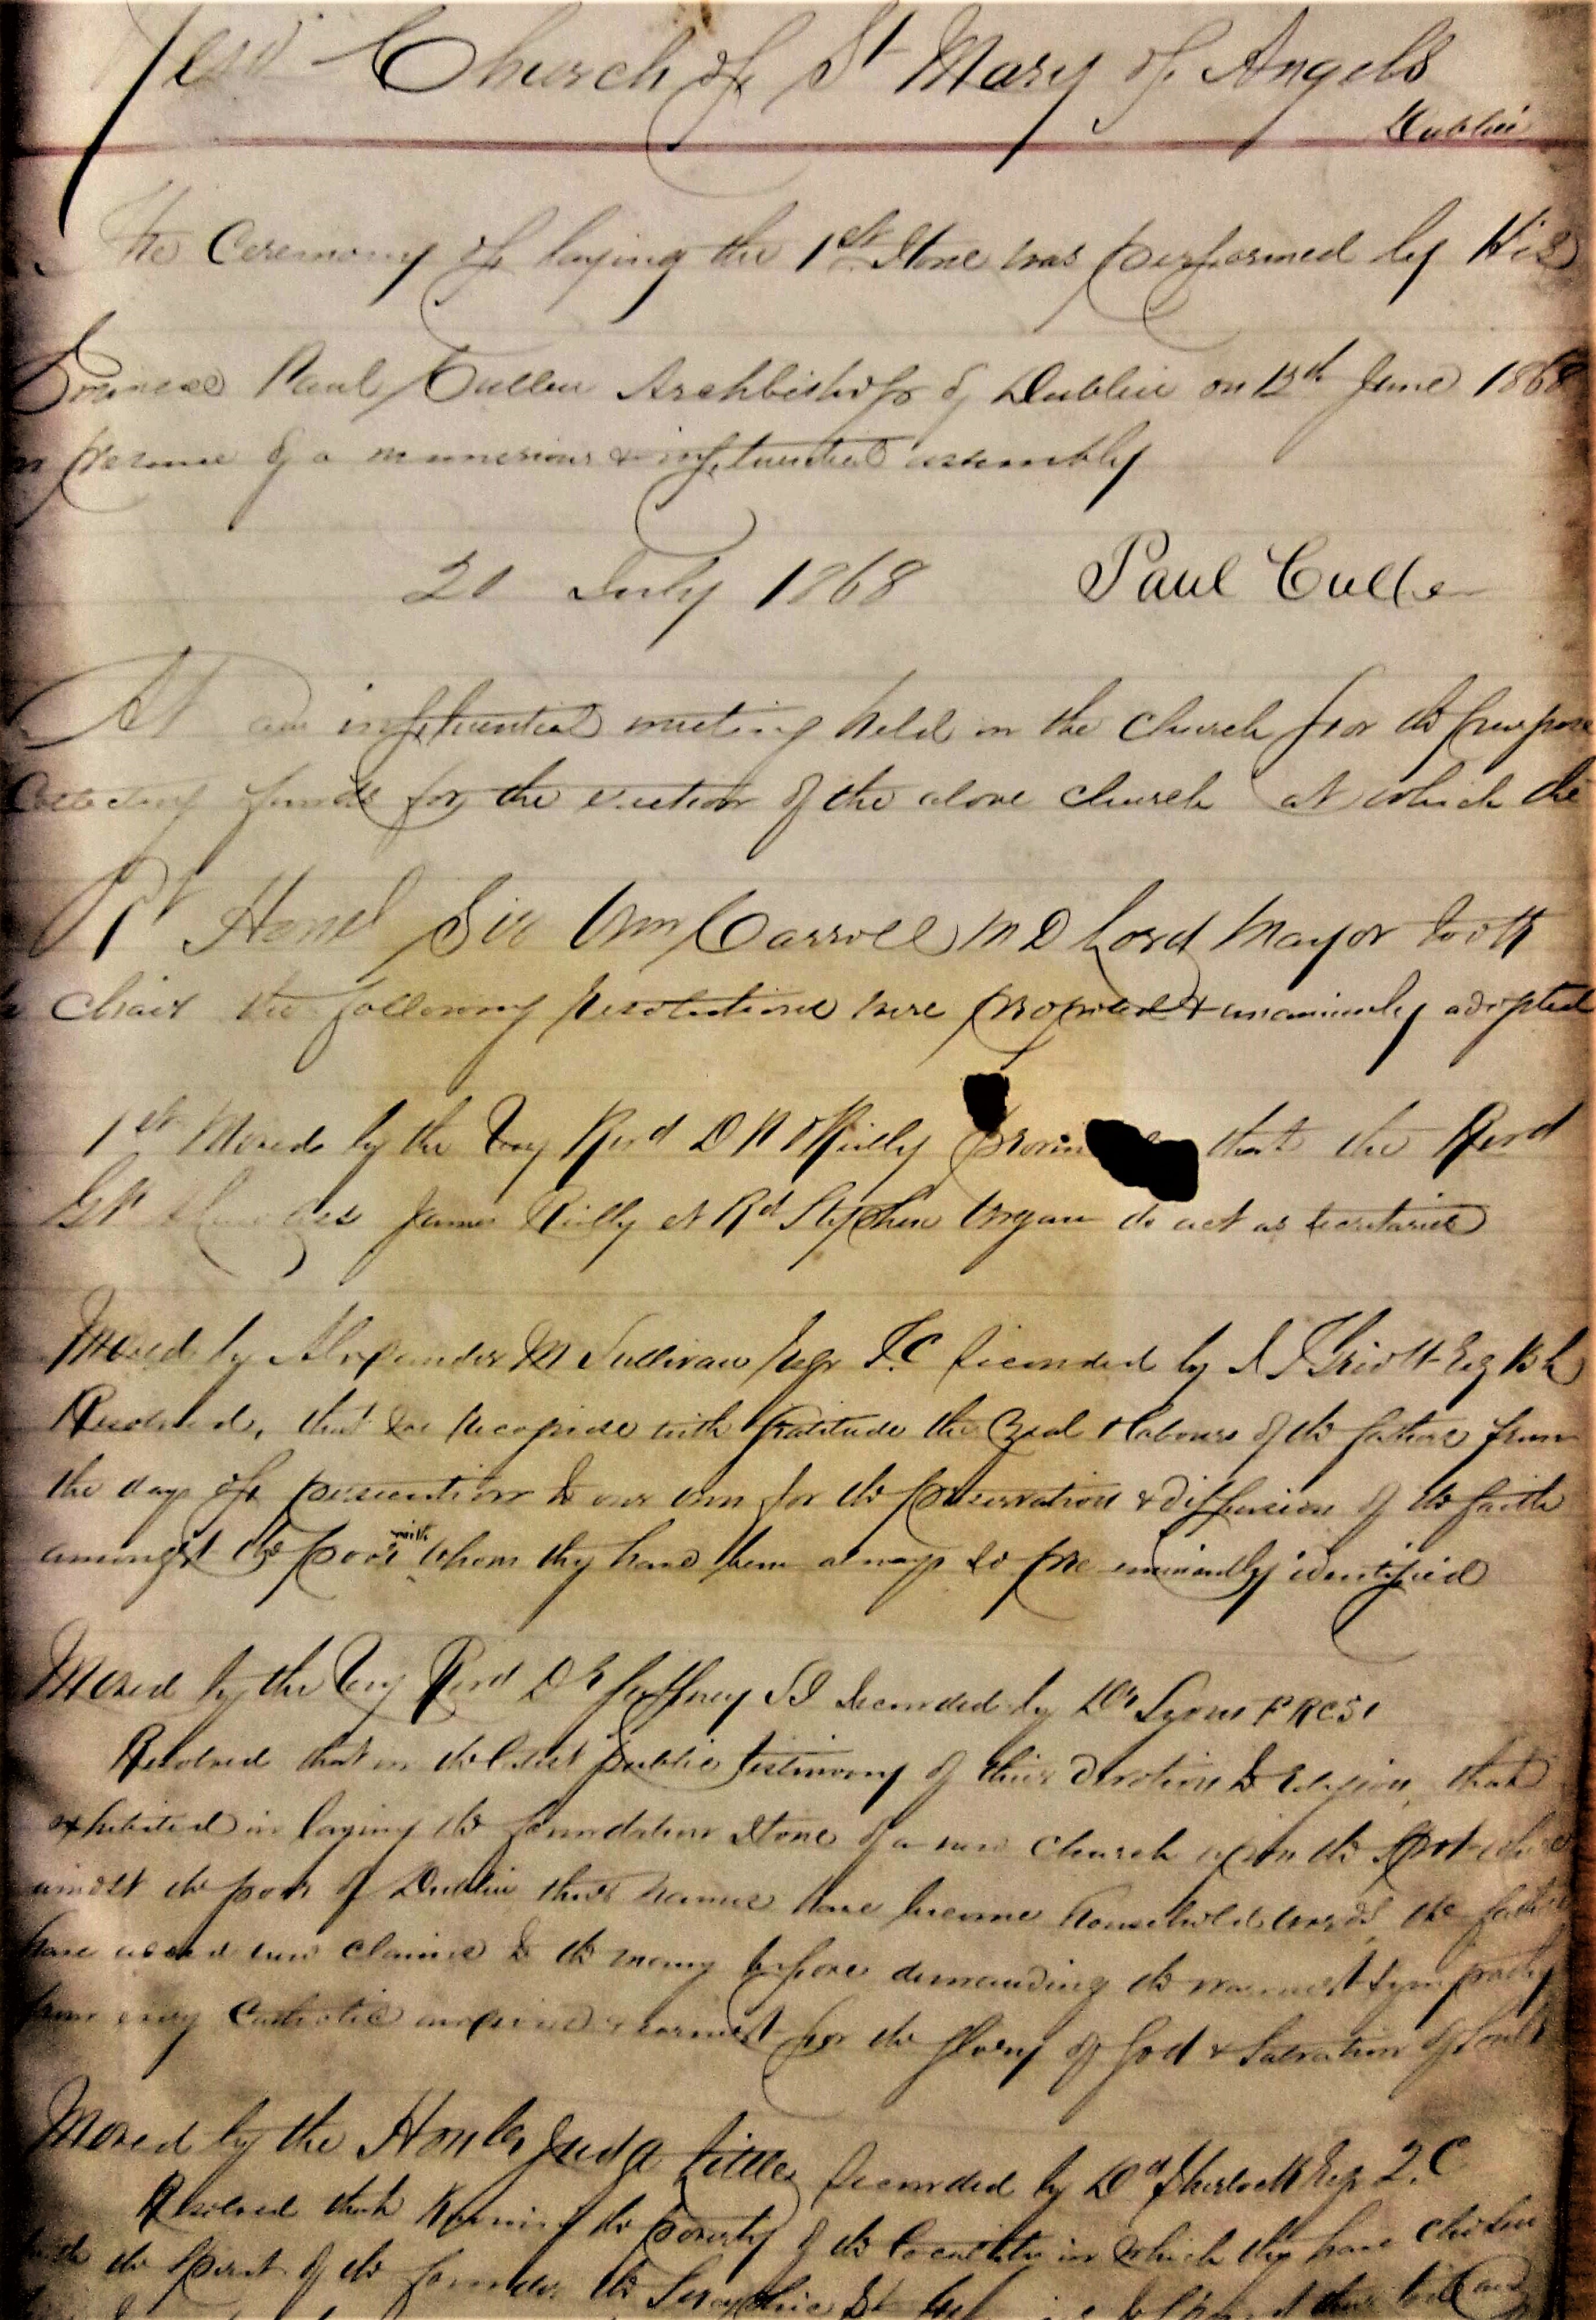 New Church of St Mary of Angels
Dublin
The Ceremony of laying the 1st Stone was performed by His
Eminence Paul Cullen Archbishop of Dublin on 12th June 1868
in presence of a numerious & influential assembly
20 July 1868 Paul Cullen
At an influential meeting held in the church for the purpose
Collecting funds for the erection of the above church at which the
Rt Honel Sir Wm Carroll M D Lord Mayor took
chair the following resolutions were proposed & unanimously adopted
1st Moved by the Very Revd D P O'Reilly that the Revd
James Reilly et Rd Stephen do act as secretaries
Moved by Alexander M Sullivan Esqr T.C Seconded by
Resolved, that we recognise with gratitude the Zeal & labours of the fathers from
the days of persecution to our own for the preservation & diffusion of the faith
amongst the poor with whom they have been always so pre eminently identified
Moved by the Very Revd Dr Gaffney SJ Seconded by Dr Lyons FRCSI
Resolved that in the latest public testimony of their devotion to religion, that
exhibited in laying the foundation stone of a new church upon the spot where
amidst the poor of Dublin their names have become household words, the fathers
have new claims to the many before demanding the warmest sympathy
from every Catholic & earnest for the glory of God & Salvation of souls
Moved by the Honble Judge Little Seconded by Dd Sherlock Esqr Q.C
Resolved that Knowing the poverty of the locality in which they have chosen
the spirit of the founder the Seraphic St